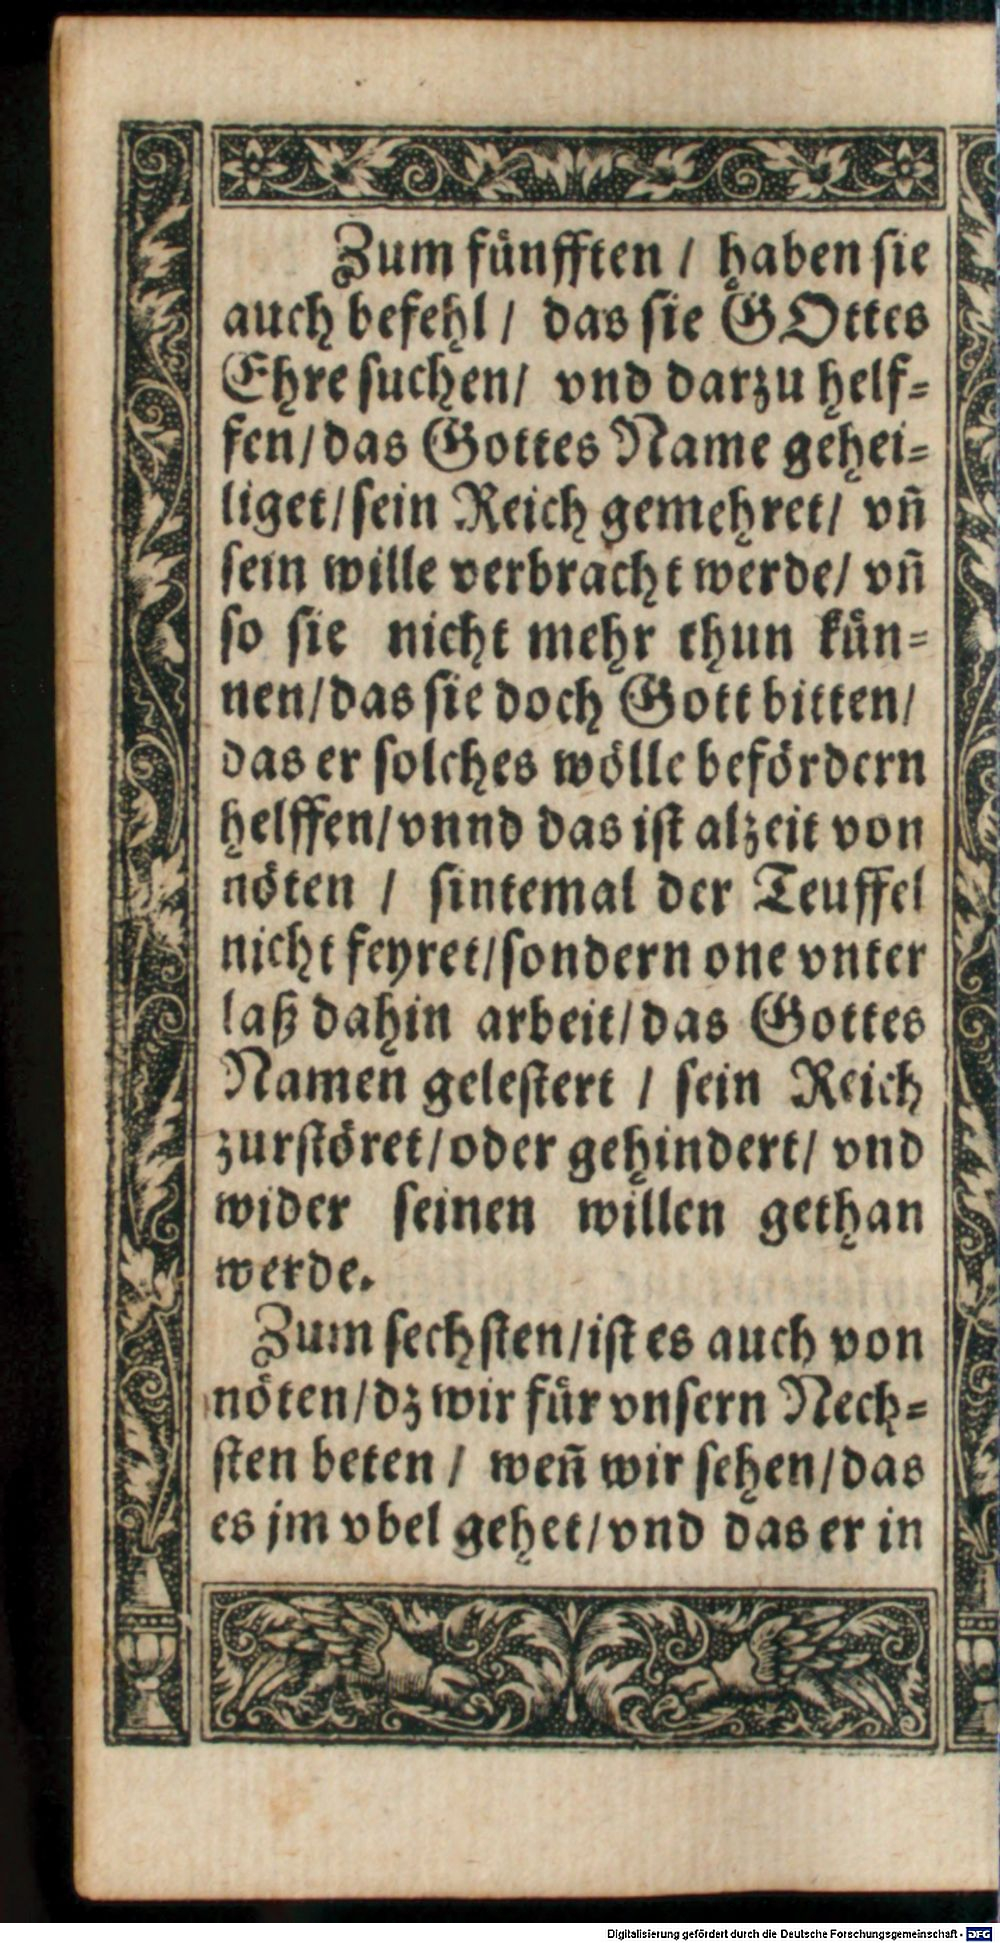 Zum fünfften / haben sie
auch befehl / das sie GOttes
Ehre suchen / vnd darzu helf=
fen / das Gottes Name gehei=
liget / sein Reich gemehret / vñ
sein wille verbracht werde / vñ
so sie nicht mehr thun kün=
nen / das sie doch Gott bitten /
das er solches wölle befördern
helffen / vnnd das ist alzeit von
nöten / sintemal der Teuffel
nicht feyret / sondern one vnter
laß dahin arbeit / das Gottes
Namen gelestert / sein Reich
zurstöret / oder gehindert / vnd
wider seinen willen gethan
werde.
Zum sechsten / ist es auch von
nöten / dz wir für vnsern Nech=
sten beten / weñ wir sehen / das
es jm vbel gehet / vnd das er in
Digitalisierung gefördert durch die Deutsche Forschungsgemeinschaft - DFG